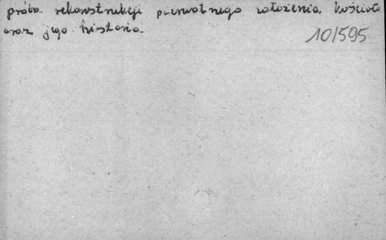 próba rekonstrukcji pierwotnego założenia kościoła
oraz jego historia.
10/595